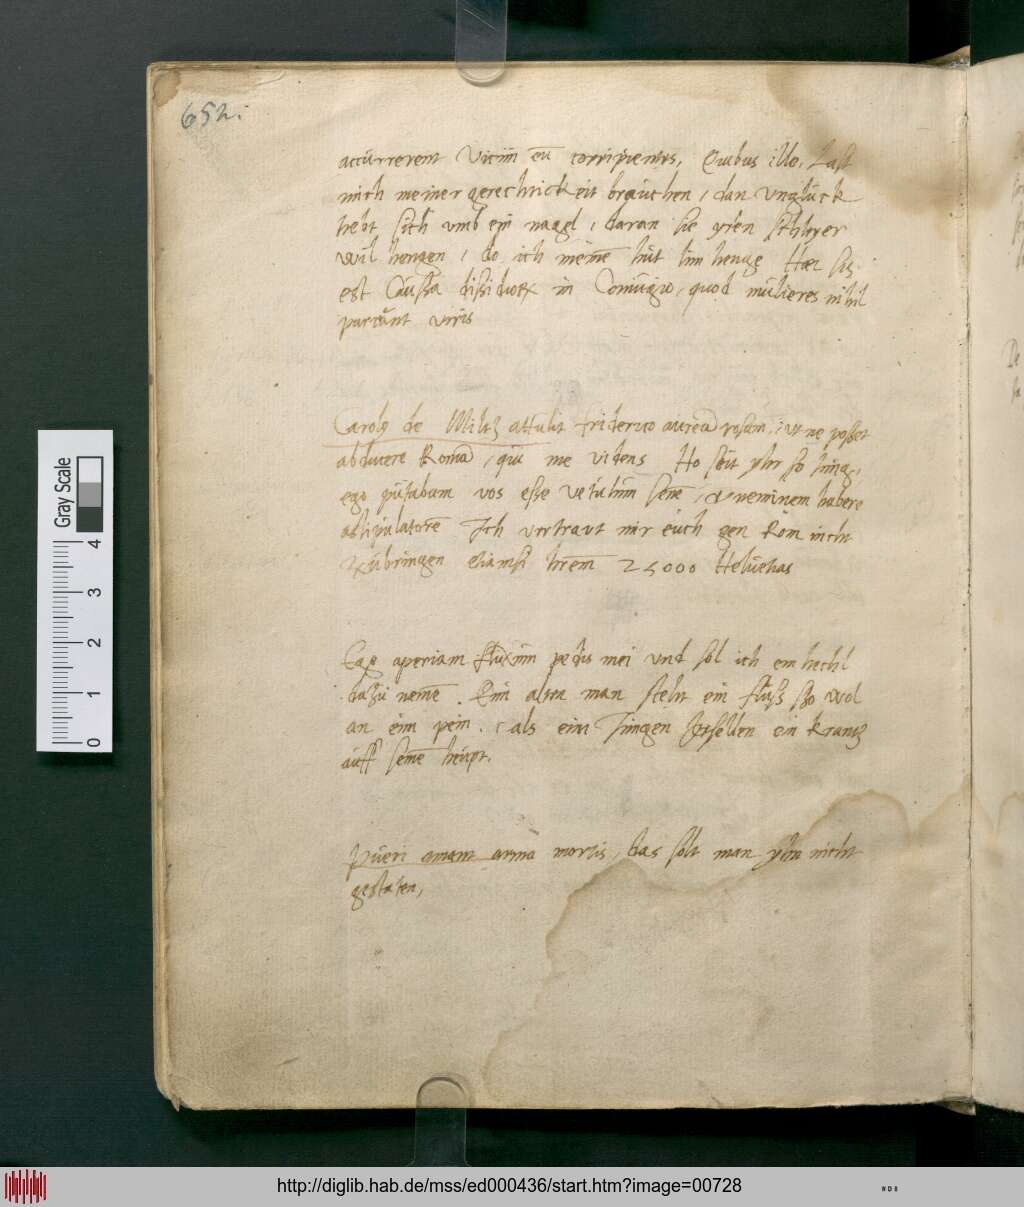 652.
accurrerent Vicini eū corripientes, Quibus ille, Last
mich meiner gerechtickeit brauchen, dan Vngluck
hebt sich vmb ein nagel, daran sie yren schleyer
wil hengen, do ich meinē hut hin henge Haec
est Caussa dissidiorum in Coniugio, quod mulieres nihil
parcant viris
Carolus de Miltz attulit friderico aureā rosam, ut ne posset
abducere Romā, qui me videns Ho seit yhr so iung,
ego putabam vos esse vetulum senē, & neminem habere
astipulatorē Ich vertraut mir euch gen Rom nicht
zubringen etiamsi 25000 Heluetias
aperiam fluxum pedis mei vnd sol ich ein hechl
dazu nemē. Eim alten man steht ein fluss so wol
an eim pein, als eim Jungen gesellen ein Krantz
auff seinē heupt.
Pueri amant arma mortis, das solt man yhn nicht
gestaten,
Gray Scale
4
3
2
1
0
http://diglib.hab.de/mss/ed000436/start.htm?image=00728